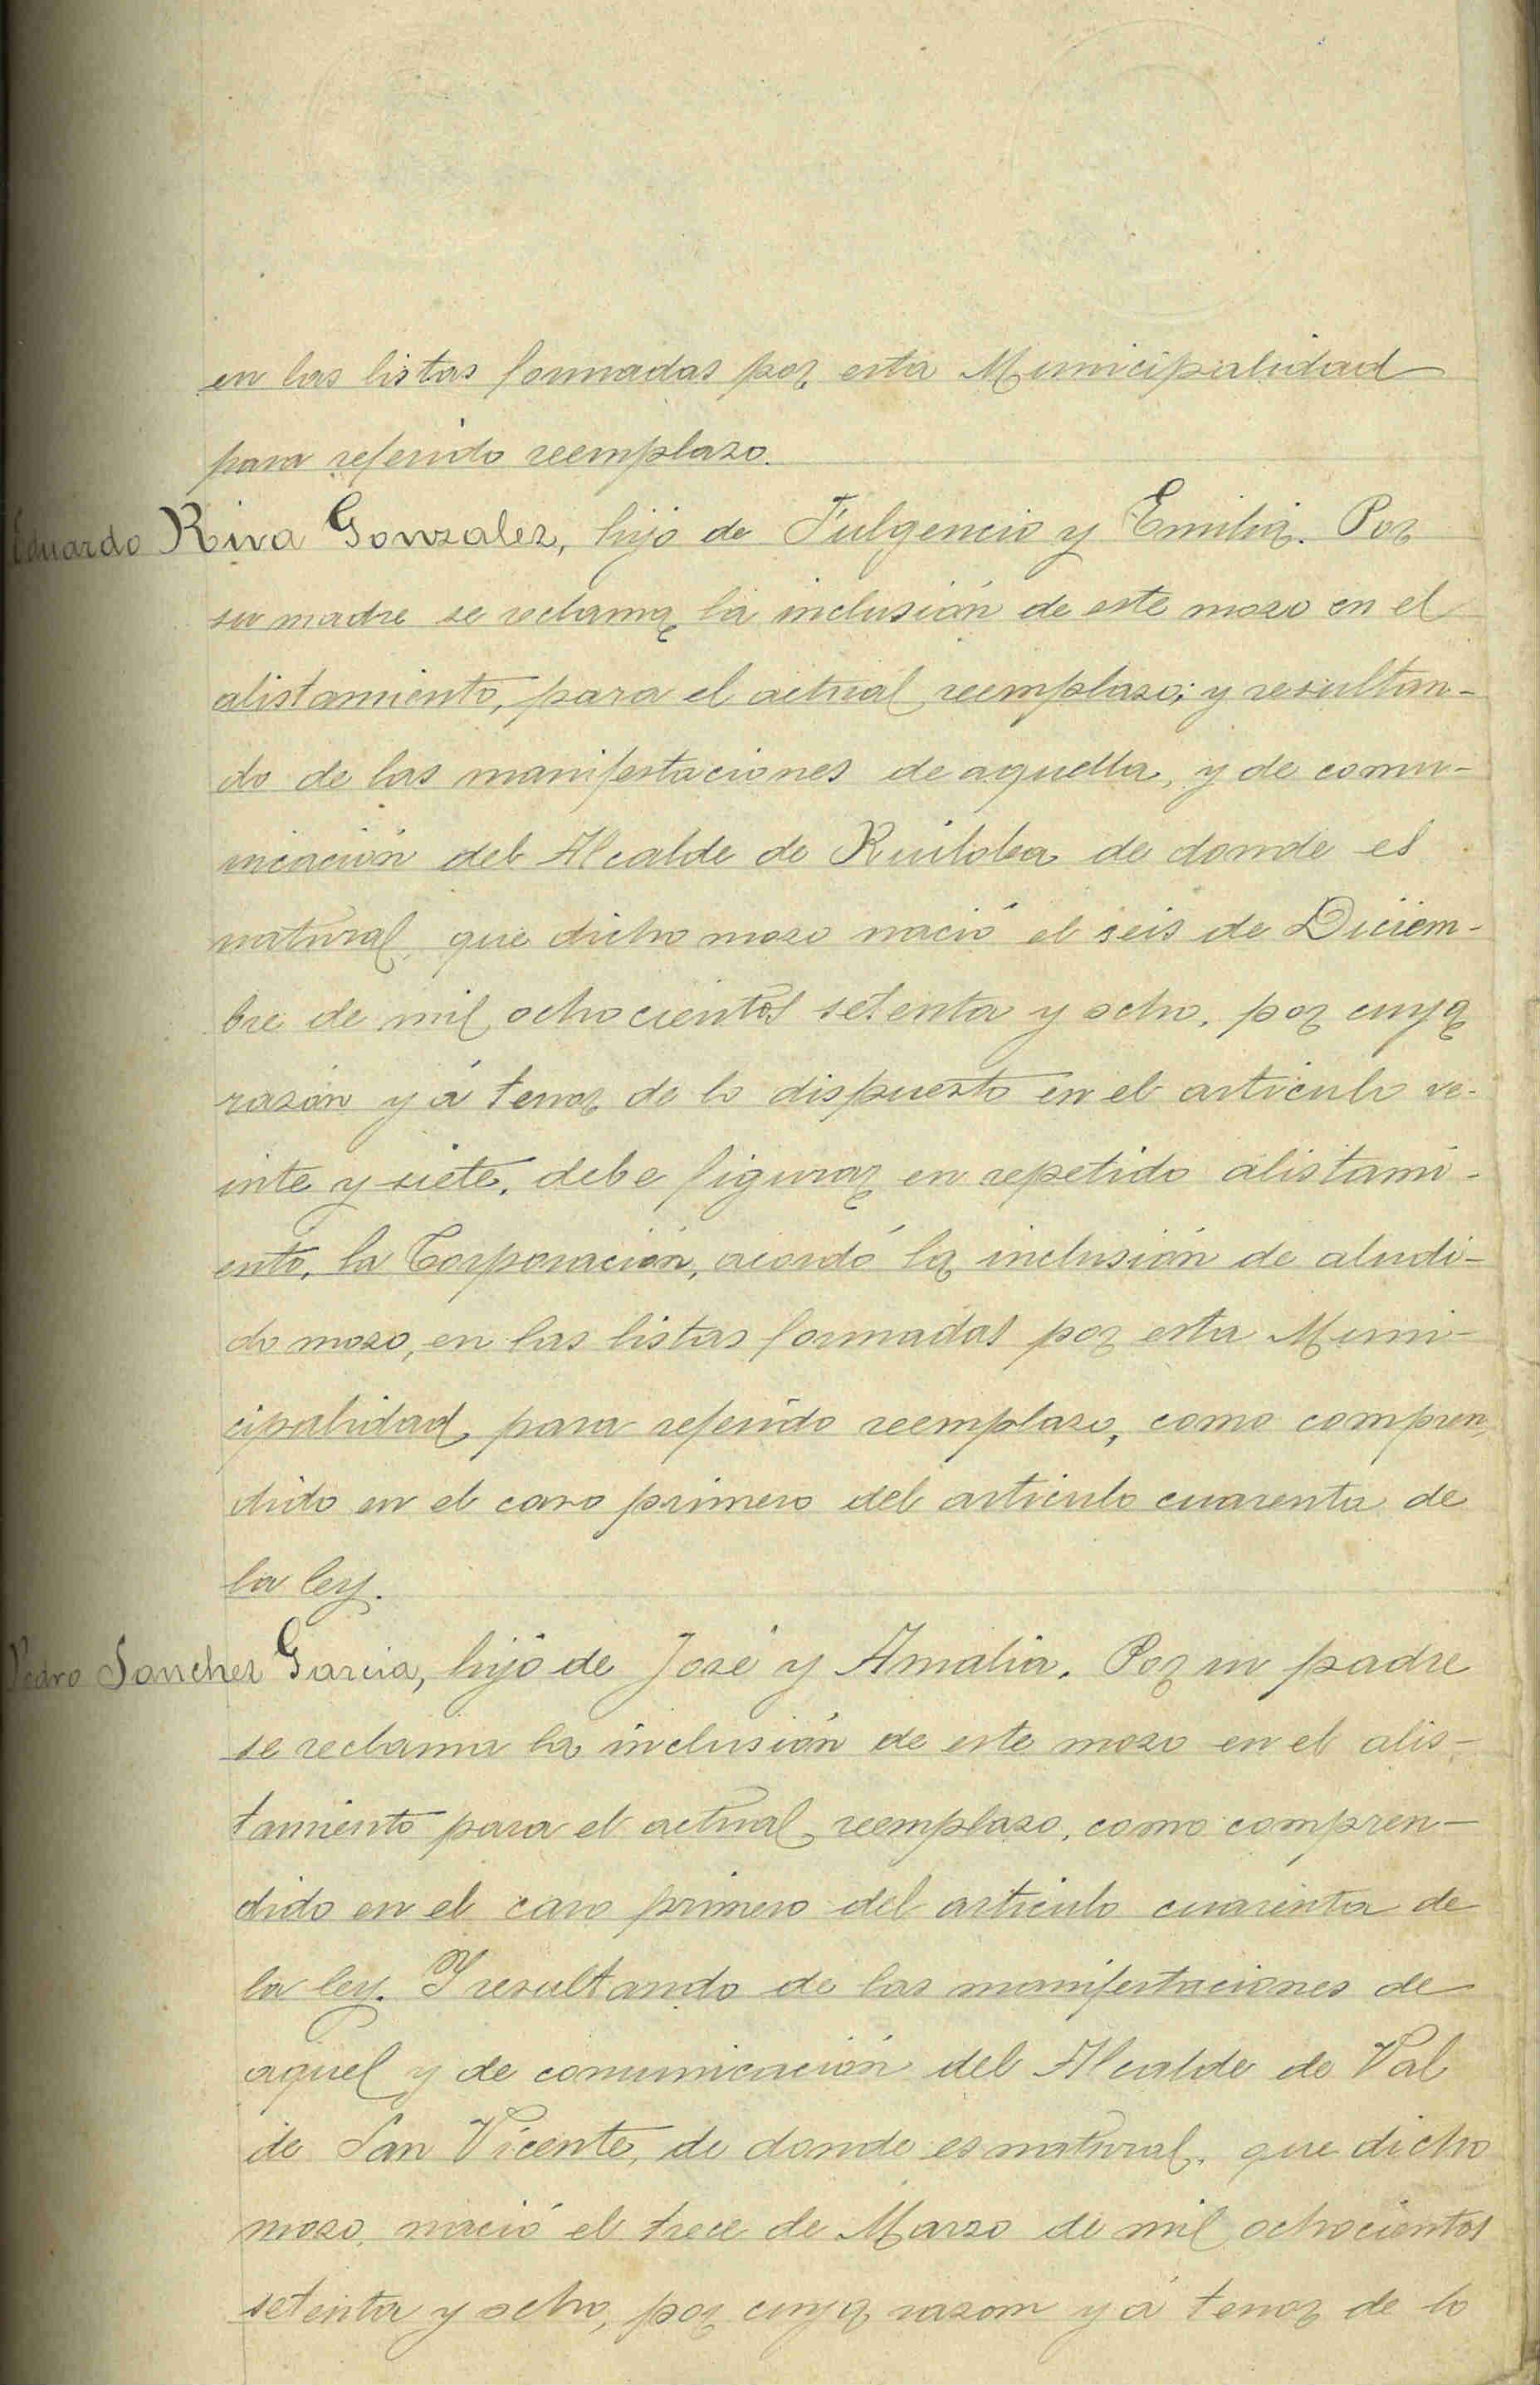 en las listas formadas por esta Municipalidad
para referido reemplazo.
Eduardo Riva Gonzalez, hijo de Fulgencio y Emilia. Por
su madre se reclama la inclusión de este mozo en el
alistamiento, para el actual reemplazo; y resultan-
do de las manifestaciones de aquella, y de comu-
nicación del Alcalde de Ruiloba de donde es
natural, que dicho mozo nació el seis de Diciem-
bre de mil ochocientos setenta y ocho, por cuya
razón y á tenor de lo dispuesto en el articulo ve-
inte y siete, debe figurar en repetido alistami-
ento, la Corporación, acordó la inclusión de aludi-
do mozo, en las listas formadas por esta Muni-
cipalidad, para referido reemplazo, como compren-
dido en el caso primero del articulo cuarenta de
la ley.
Pedro Sanchez Garcia, hijo de José y Amalia. Por su padre
se reclama la inclusión de este mozo en el alis-
tamiento para el actual reemplazo, como compren-
dido en el caso primero del articulo cuarenta de
la ley. Y resultando de las manifestaciones de
aquel y de comunicación del Alcalde de Val
de San Vicente, de donde es natural, que dicho
mozo, nació el trece de Marzo de mil ochocientos
setenta y ocho, por cuya razon y á tenor de lo